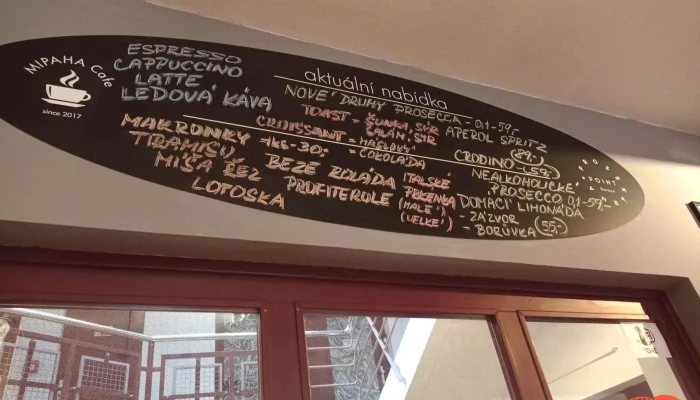 MIPAHA Cafe
since 2017
ESPRESSO
CAPPUCCINO
LATTE
LEDOVÁ KÁVA
aktuální nabídka
NOVÉ DRUHY PROSECCA - 0,1-59,-
TOAST = ŠUNKA, SÝR
SALÁM, SÝR
CROISSANT = MÁSLOVÝ
= ČOKOLÁDA
APEROL SPRITZ
(89,-)
CRODINO (59,-)
NEALKOHOLICKÉ
PROSECCO 0,1-59,-
DOMÁCÍ LIMONÁDA
- ZÁZVOR
- BORŮVKA (55,-)
MAKRONKY 1KS-30,-
TIRAMISU
MÍŠA ŘEZ
LOTOSKA
BEZE ROLÁDA
PROFITEROLE
ITALSKÉ
PRKÉNKA
(MALÉ)
(VELKÉ)
POINT